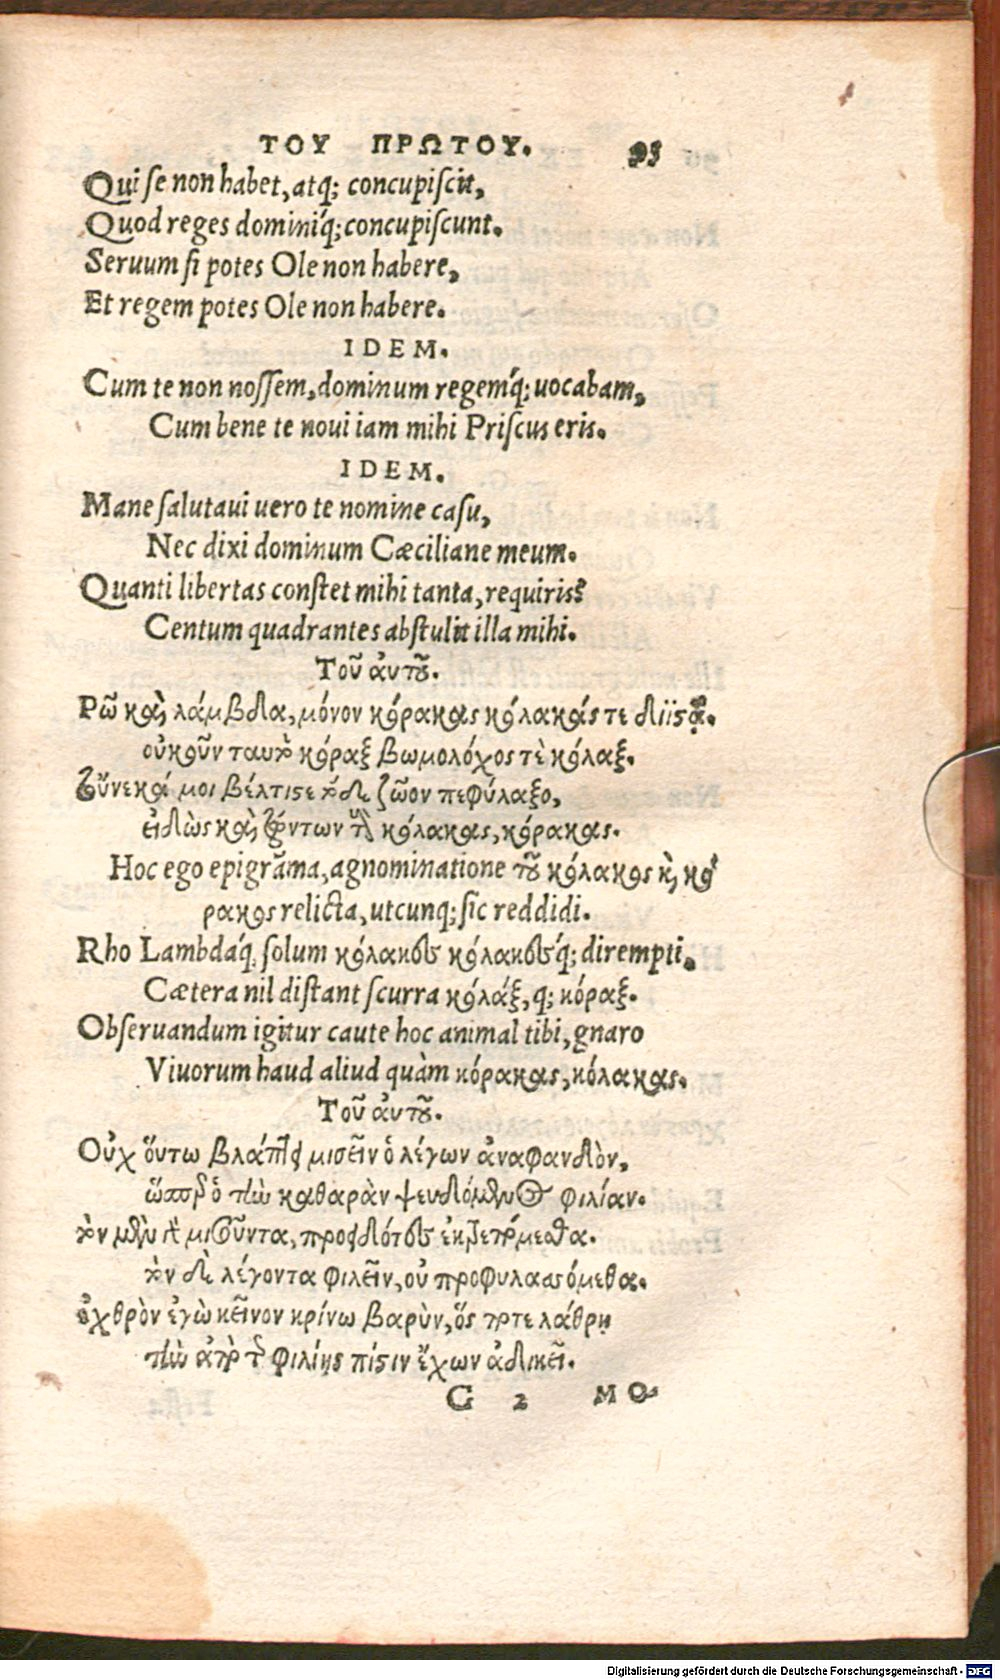 ΤΟΥ ΠΡΩΤΟΥ. 93
Qui se non habet, atq; concupiscit,
Quod reges dominiq́; concupiscunt.
Seruum si potes Ole non habere,
Et regem potes Ole non habere.
IDEM.
Cum te non nossem, dominum regemq́; uocabam,
Cum bene te noui iam mihi Priscus eris.
IDEM.
Mane salutaui uero te nomine casu,
Nec dixi dominum Cæciliane meum.
Quanti libertas constet mihi tanta, requiris?
Centum quadrantes abstulit illa mihi.
Τοῦ ἀυτοῦ.
Ρῶ καὶ λάμβδα, μόνον κόρακας κόλακάς τε διΐστᾳ.
οὐκοῦν ταυτὸ κόραξ βωμολόχος τὲ κόλαξ.
τοὔνεκά μοι βέλτιστε τόδε ζῶον πεφύλαξο,
εἰδὼς καὶ ζώντων τοὺς κόλακας, κόρακας.
Hoc ego epigrãma, agnominatione τοῦ κόλακος κὶ κό
ρακος relicta, utcunq; sic reddidi.
Rho Lambdáq, solum κόλακας κόλακας q́; dirempti,
Cætera nil distant scurra κόλάξ, q; κόραξ.
Obseruandum igitur caute hoc animal tibi, gnaro
Viuorum haud aliud quàm κόρακας, κόλακας.
Τοῦ ἀυτοῦ.
Οὐχ ὅυτω βλάπτει μισεῖν ὁ λέγων ἀναφανδὸν,
ὥσπερ ὁ τὴν καθαρὰν ψευδόμενος φιλίαν.
τὸν μὲν γὰρ μισοῦντα, προειδότες ἐκτρεπόμεθα.
τὸν δὲ λέγοντα φιλεῖν, οὐ προφυλασσόμεθα.
ἐχθρὸν ἐγὼ κεῖνον κρίνω βαρὺν, ὅς ποτε λάθρῃ
τὴν ἀπὸ τῆς φιλίης πίστιν ἔχων ἀδικεῖ.
G 2 ΜΟ-
Digitalisierung gefördert durch die Deutsche Forschungsgemeinschaft - DFG